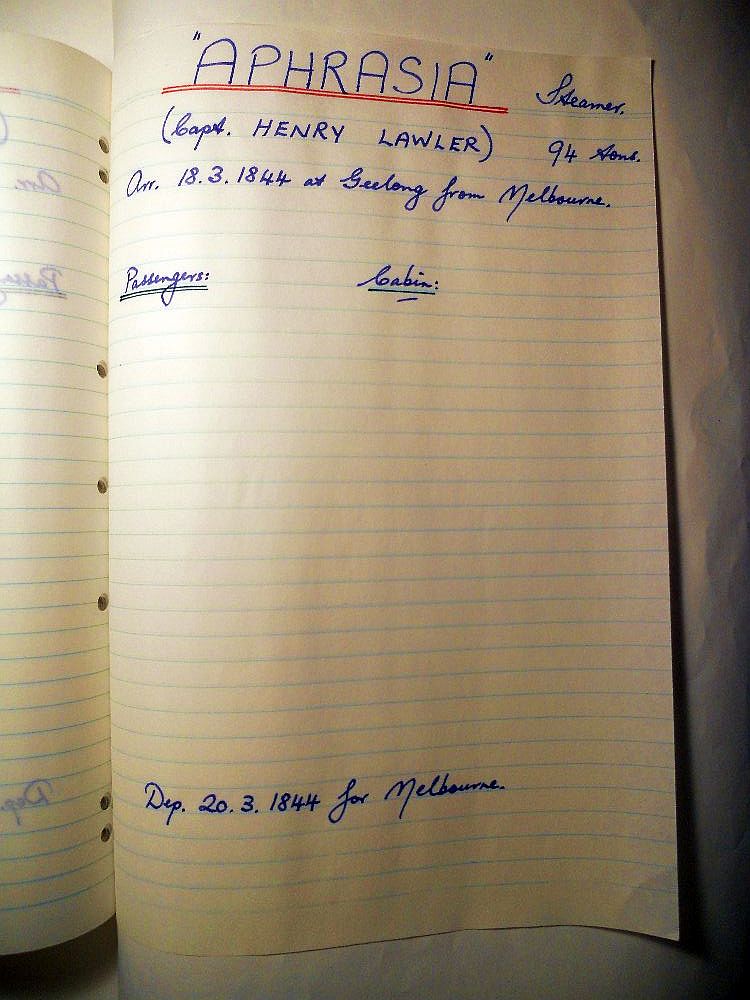 "APHRASIA" Steamer.
(Capt. HENRY LAWLER) 94 tons.
Arr. 18.3.1844 at Geelong from Melbourne.
Passengers: Cabin:
Dep. 20.3.1844 for Melbourne.